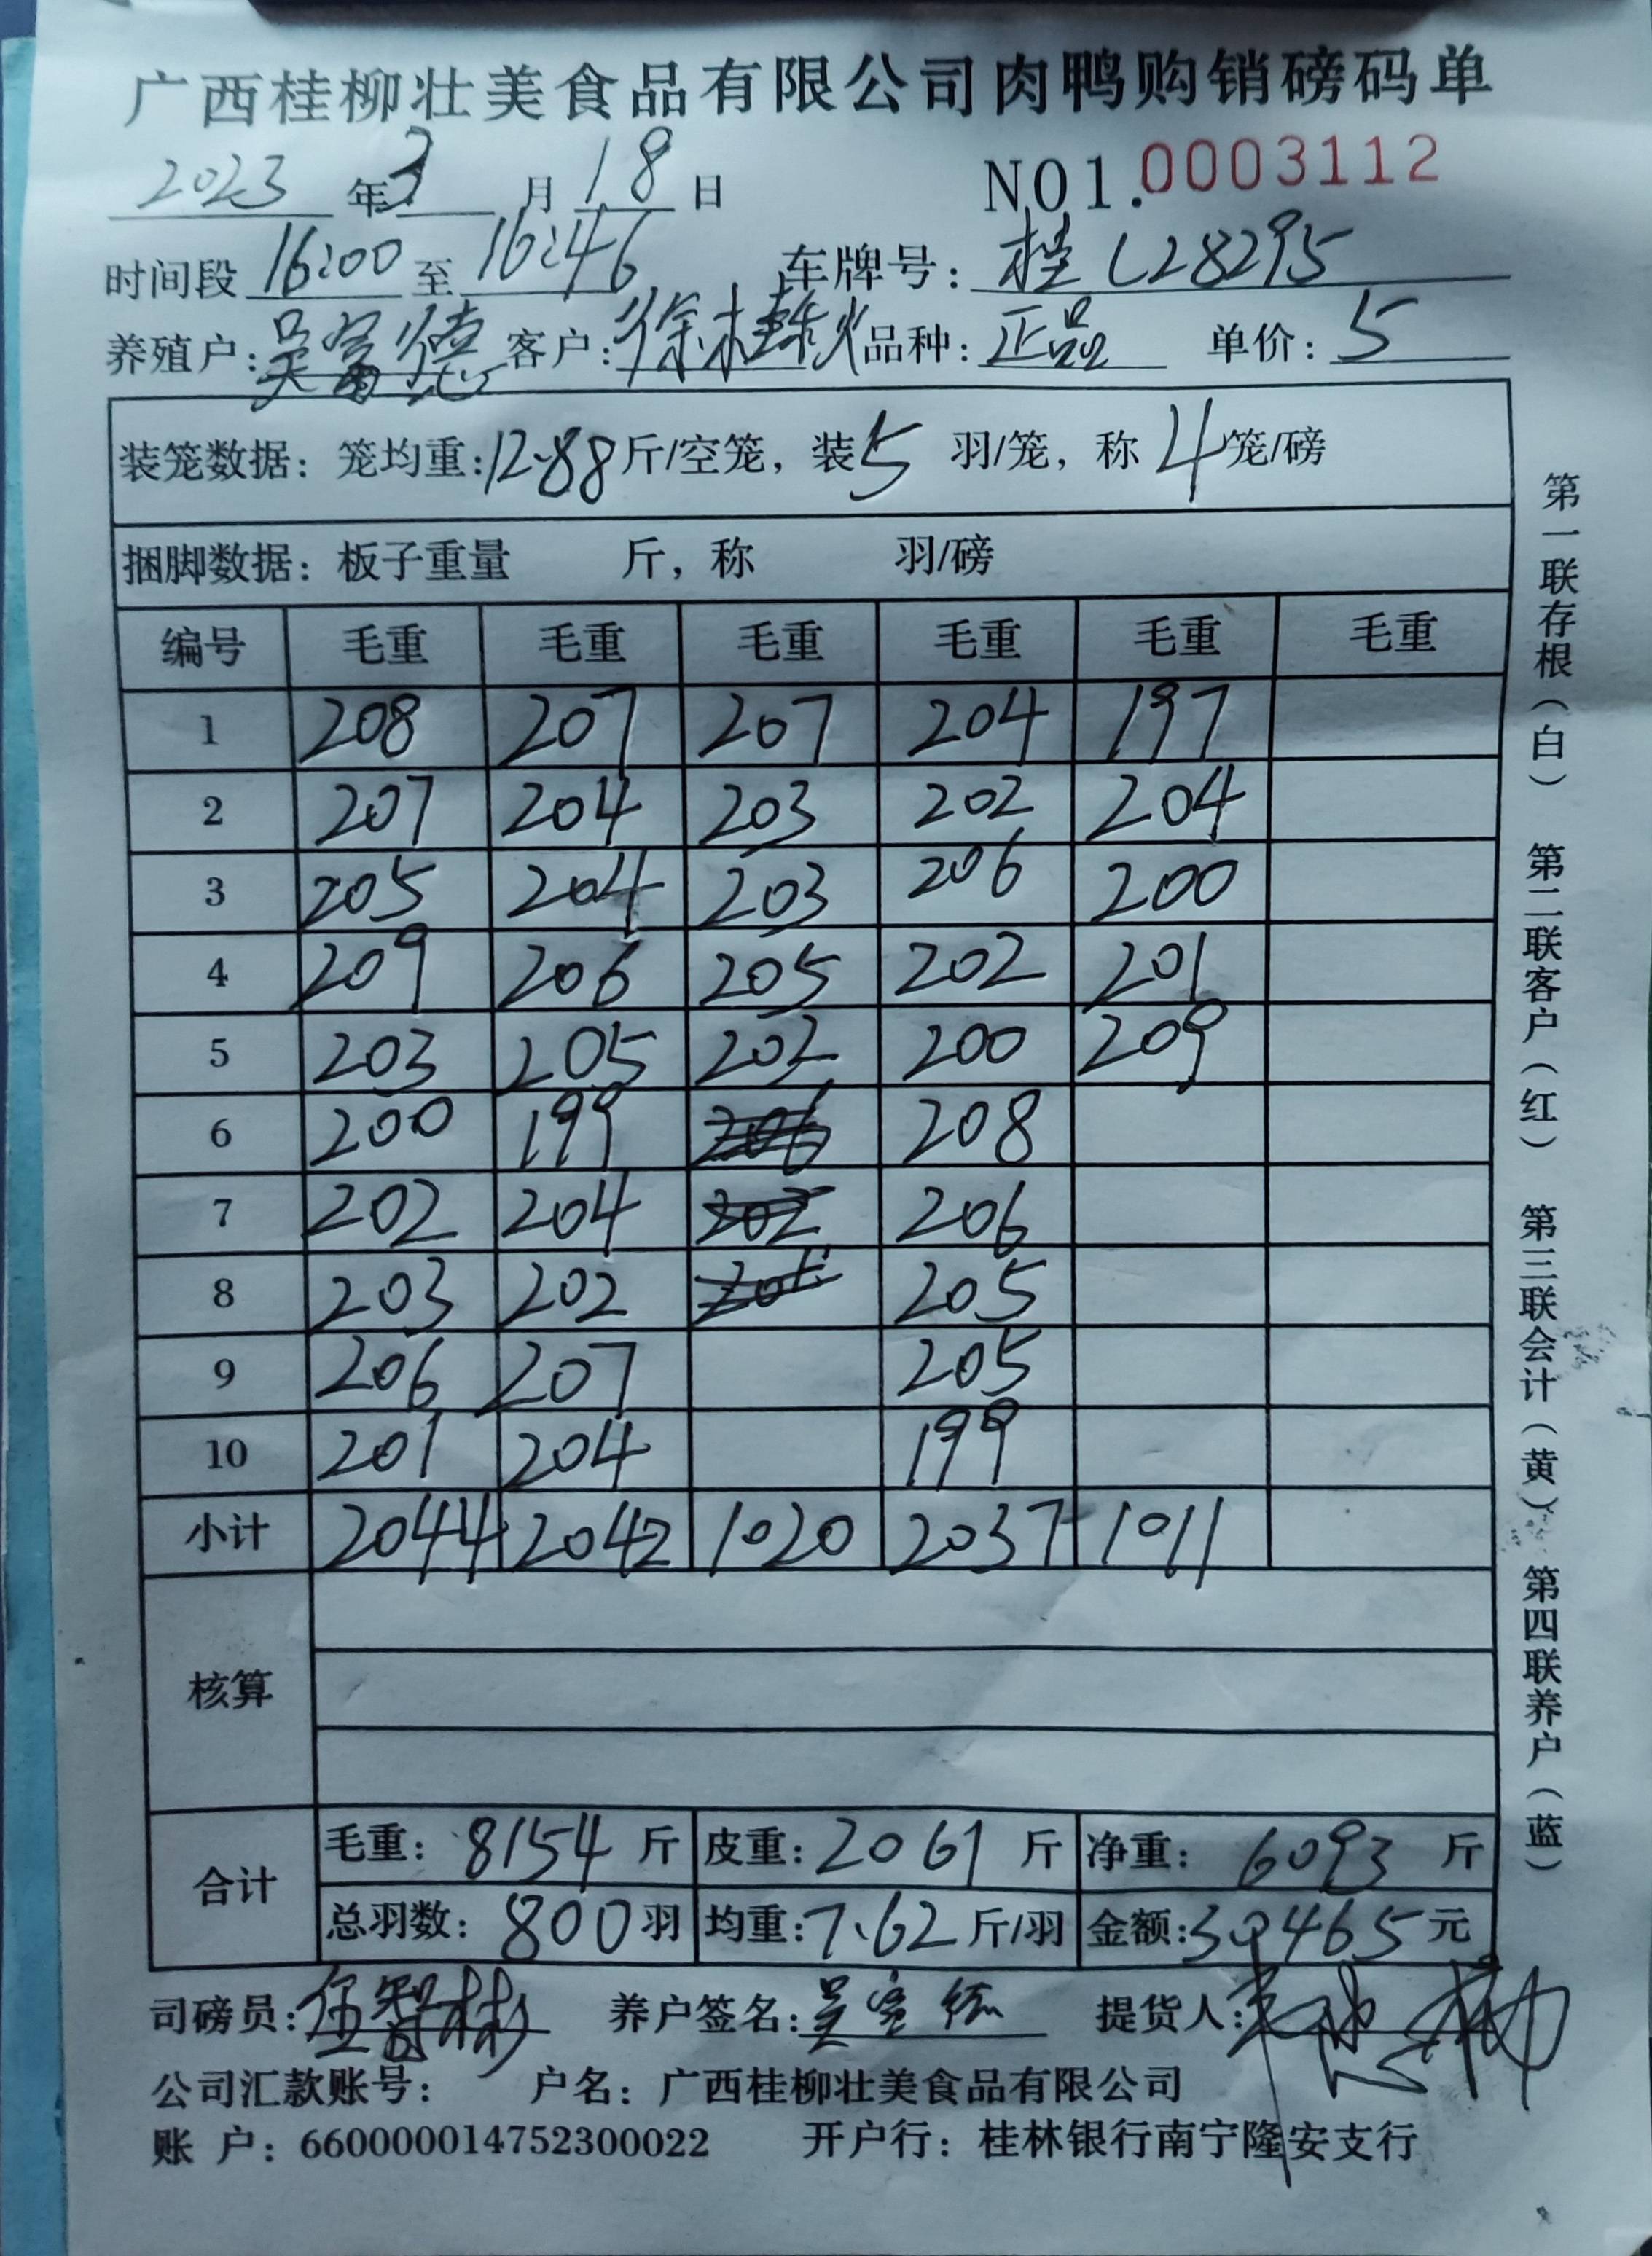 广西桂柳壮美食品有限公司肉鸭购销磅码单
2023 年 3 月 18 日 NO1.0003112
时间段 16:00 至 16:46 车牌号: 桂C28295
养殖户: 吴富德 客户: 徐桂秋 品种: 正品 单价: 5
装笼数据: 笼均重: 12.88 斤/空笼, 装 5 羽/笼, 称 4 笼/磅
捆脚数据: 板子重量 斤, 称 羽/磅
编号 毛重 毛重 毛重 毛重 毛重 毛重
1 208 207 207 204 197
2 207 204 203 202 204
3 205 204 203 206 200
4 209 206 205 202 201
5 203 205 202 200 209
6 200 199 206 208
7 202 204 202 206
8 203 202 205
9 206 207 205
10 201 204 199
小计 2044 2042 1020 2037 1011
核算
合计
毛重: 8154 斤 皮重: 2061 斤 净重: 6093 斤
总羽数: 800 羽 均重: 7.62 斤/羽 金额: 30465 元
司磅员: 伍智彬 养户签名: 吴富德 提货人:
公司汇款账号: 户名: 广西桂柳壮美食品有限公司
账 户: 660000014752300022 开户行: 桂林银行南宁隆安支行
第一联存根(白) 第二联客户(红) 第三联会计(黄) 第四联养户(蓝)